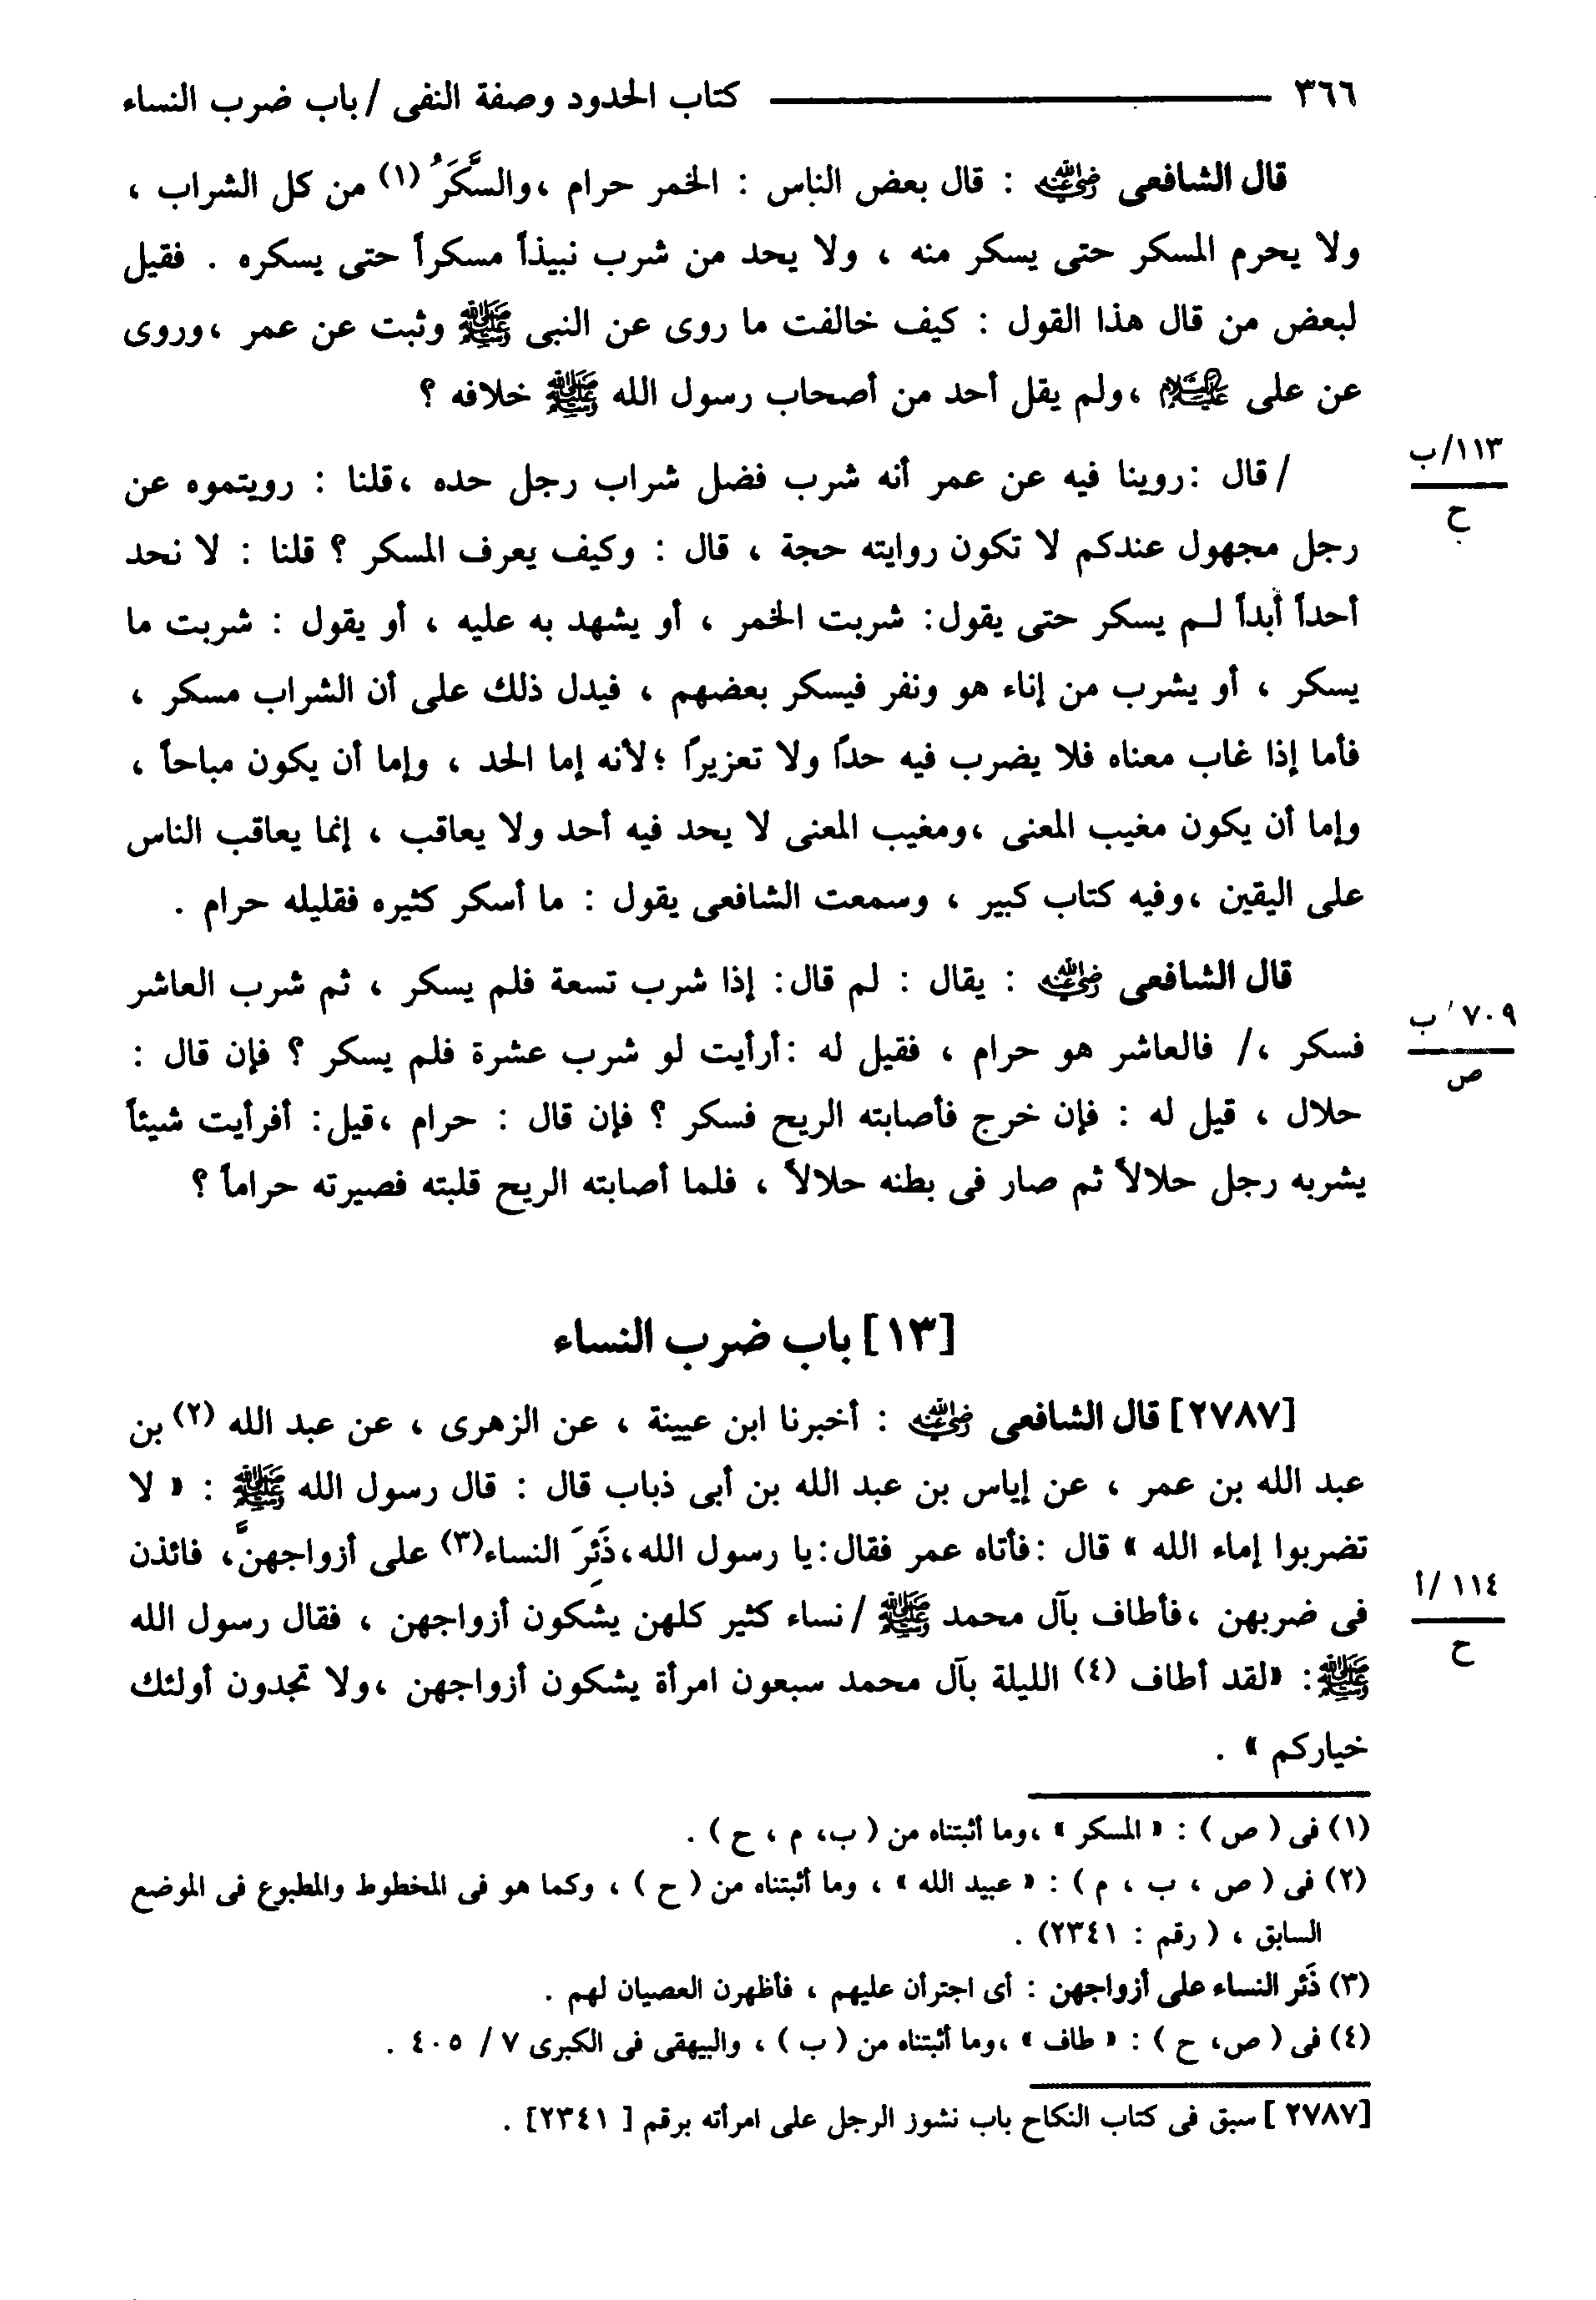 ٣٦٦ ــــــــــ كتاب الحدود وصفة النفى / باب ضرب النساء
قال الشافعى رضي الله عنه : قال بعض الناس : الخمر حرام ،والسَّكَرُ (١) من كل الشراب ،
ولا يحرم المسكر حتى يسكر منه ، ولا يحد من شرب نبيذاً مسكراً حتى يسكره . فقيل
لبعض من قال هذا القول : كيف خالفت ما روى عن النبى ﷺ وثبت عن عمر ،وروى
عن على عليه السلام ،ولم يقل أحد من أصحاب رسول الله ﷺ خلافه ؟
١١٣/ب
ح
/ قال :روينا فيه عن عمر أنه شرب فضل شراب رجل حده ،قلنا : رويتموه عن
رجل مجهول عندكم لا تكون روايته حجة ، قال : وكيف يعرف المسكر ؟ قلنا : لا نحد
أحداً أبداً لـم يسكر حتى يقول: شربت الخمر ، أو يشهد به عليه ، أو يقول : شربت ما
يسكر ، أو يشرب من إناء هو ونفر فيسكر بعضهم ، فيدل ذلك على أن الشراب مسكر ،
فأما إذا غاب معناه فلا يضرب فيه حداً ولا تعزيراً ؛لأنه إما الحد ، وإما أن يكون مباحاً ،
وإما أن يكون مغيب المعنى ،ومغيب المعنى لا يحد فيه أحد ولا يعاقب ، إنما يعاقب الناس
على اليقين ،وفيه كتاب كبير ، وسمعت الشافعى يقول : ما أسكر كثيره فقليله حرام .
قال الشافعى رضي الله عنه : يقال : لم قال: إذا شرب تسعة فلم يسكر ، ثم شرب العاشر
٧٠٩/ب
ص
فسكر ،/ فالعاشر هو حرام ، فقيل له :أرأيت لو شرب عشرة فلم يسكر ؟ فإن قال :
حلال ، قيل له : فإن خرج فأصابته الريح فسكر ؟ فإن قال : حرام ،قيل: أفرأيت شيئاً
يشربه رجل حلالاً ثم صار فى بطنه حلالاً ، فلما أصابته الريح قلبته فصيرته حراماً ؟
[١٣] باب ضرب النساء
[٢٧٨٧] قال الشافعى رضي الله عنه : أخبرنا ابن عيينة ، عن الزهرى ، عن عبد الله (٢) بن
عبد الله بن عمر ، عن إياس بن عبد الله بن أبى ذباب قال : قال رسول الله ﷺ : « لا
تضربوا إماء الله » قال :فأتاه عمر فقال:يا رسول الله،ذَئِرَ النساء(٣) على أزواجهنَّ، فائذن
١١٤/أ
ح
فى ضربهن ،فأطاف بآل محمد ﷺ / نساء كثير كلهن يشكون أزواجهن ، فقال رسول الله
ﷺ: «لقد أطاف (٤) الليلة بآل محمد سبعون امرأة يشكون أزواجهن ،ولا تجدون أولئك
خياركم » .
(١) فى ( ص ) : « المسكر » ،وما أثبتناه من ( ب، م ، ح ) .
(٢) فى ( ص ، ب ، م ) : « عبيد الله » ، وما أثبتناه من ( ح ) ، وكما هو فى المخطوط والمطبوع فى الموضع
السابق ، ( رقم : ٢٣٤١) .
(٣) ذَئر النساء على أزواجهن : أى اجترأن عليهم ، فأظهرن العصيان لهم .
(٤) فى ( ص، ح ) : « طاف » ،وما أثبتناه من ( ب ) ، والبيهقى فى الكبرى ٧ / ٤٠٥ .
[٢٧٨٧ ] سبق فى كتاب النكاح باب نشوز الرجل على امرأته برقم [ ٢٣٤١] .